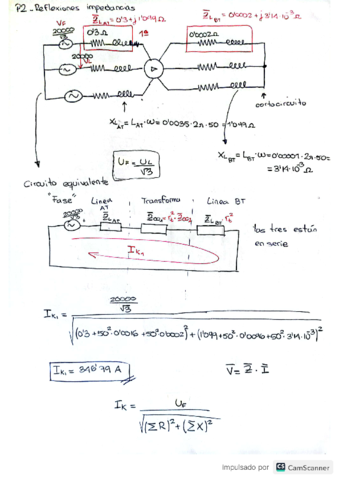 P2_Reflexiones impedancias
Z̄L_AT = 0'3 + j1'099Ω
Z̄L_BT = 0'0002 + j3'14·10⁻³Ω
VF
20000/√3
0'3Ω
1ª
0'0002Ω
20000
cortocircuito
XL_AT = L_AT·ω = 0'0035·2π·50 = 1'099Ω
UF = UL/√3
XL_BT = L_BT·ω = 0'00001·2π·50 =
= 3'14·10⁻³Ω
Circuito equivalente
"Fase"
Linea AT
Transformo
Linea BT
20000/√3
Z̄L_AT
Z̄L_BT·rt²
IK1
las tres están
en serie
IK1 = (20000/√3) / √((0'3 + 50²·0'0016 + 50²·0'0002)² + (1'099 + 50²·0'0096 + 50²·3'14·10⁻³)²)
IK1 = 348'79 A
V̄ = Z̄ · Ī
IK = UF / √((ΣR)² + (ΣX)²)
Impulsado por CS CamScanner